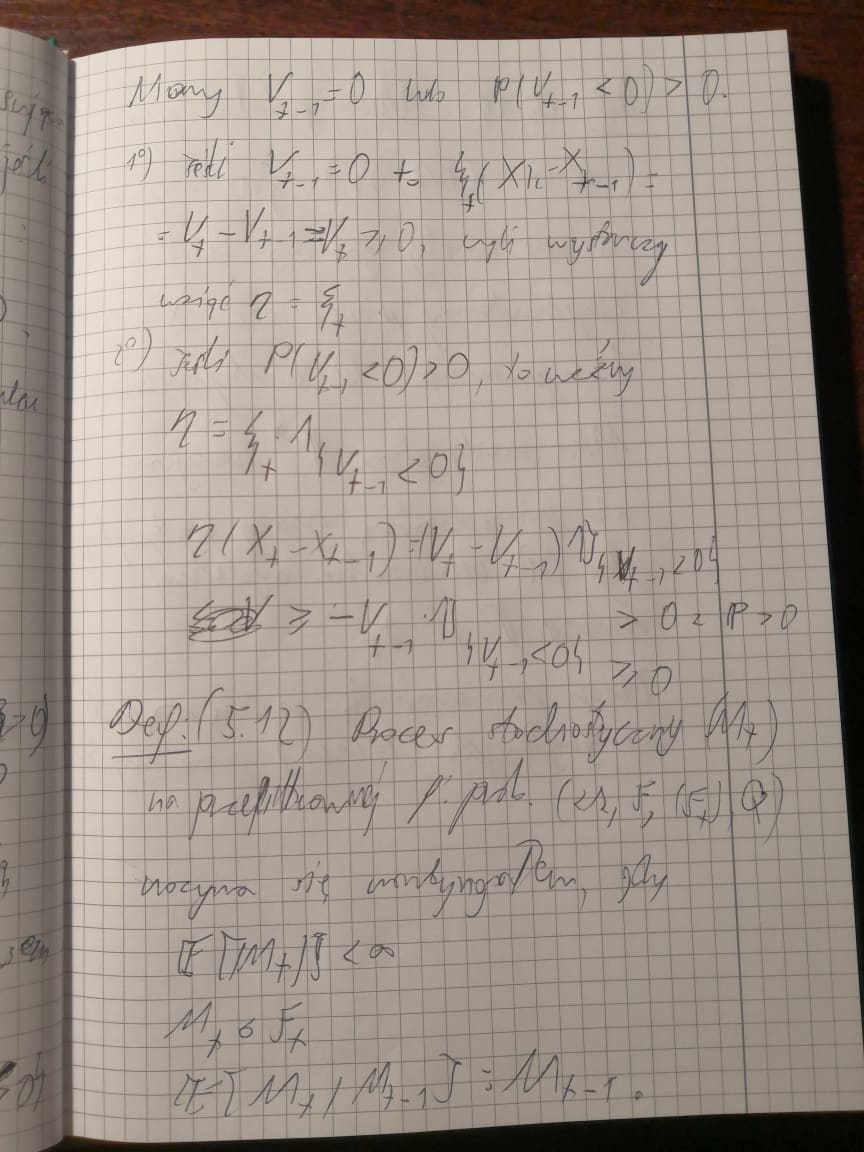 Mamy V_{t-1} = 0 lub P(V_{t-1} < 0) > 0.
1°) jeśli V_{t-1} = 0 to ξ_t(X_t - X_{t-1}) =
= V_t - V_{t-1} = V_t ≥ 0, czyli wystarczy
wziąć η = ξ_t
2°) jeśli P(V_{t-1} < 0) > 0, to weźmy
η = ξ_t · 1_{V_{t-1} < 0}
η(X_t - X_{t-1}) = (V_t - V_{t-1}) 1_{V_{t-1} < 0}
≥ -V_{t-1} · 1_{V_{t-1} < 0} > 0 z P > 0
≥ 0
Def: (5.12) Proces stochastyczny (M_t)
na przefiltrowanej p. prob. (Ω, F, (F_t), Q)
nazywa się martyngałem, gdy
E[|M_t|] < ∞
M_t ∈ F_t
E[M_t | M_{t-1}] = M_{t-1}.